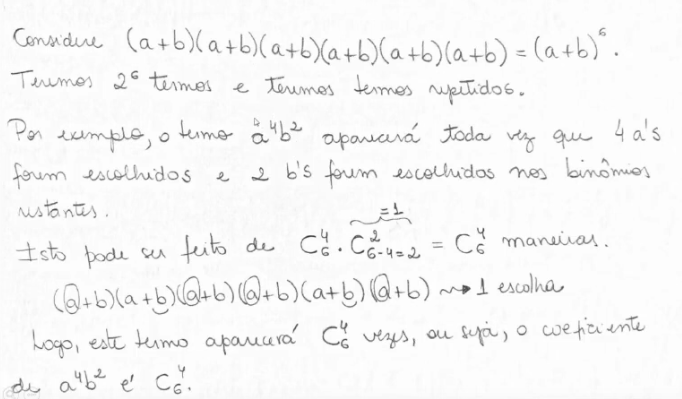 Considere (a+b)(a+b)(a+b)(a+b)(a+b)(a+b) = (a+b)⁶.
Teremos 2⁶ termos e teremos termos repetidos.
Por exemplo, o termo a⁴b² aparecerá toda vez que 4 a's
forem escolhidos e 2 b's forem escolhidos nos binômios
restantes.
=1
Isto pode ser feito de C₆⁴ · C²₆₋₄₌₂ = C₆⁴ maneiras.
(a+b)(a+b)(a+b)(a+b)(a+b)(a+b) ⤳ 1 escolha
Logo, este termo aparecerá C₆⁴ vezes, ou seja, o coeficiente
de a⁴b² é C₆⁴.